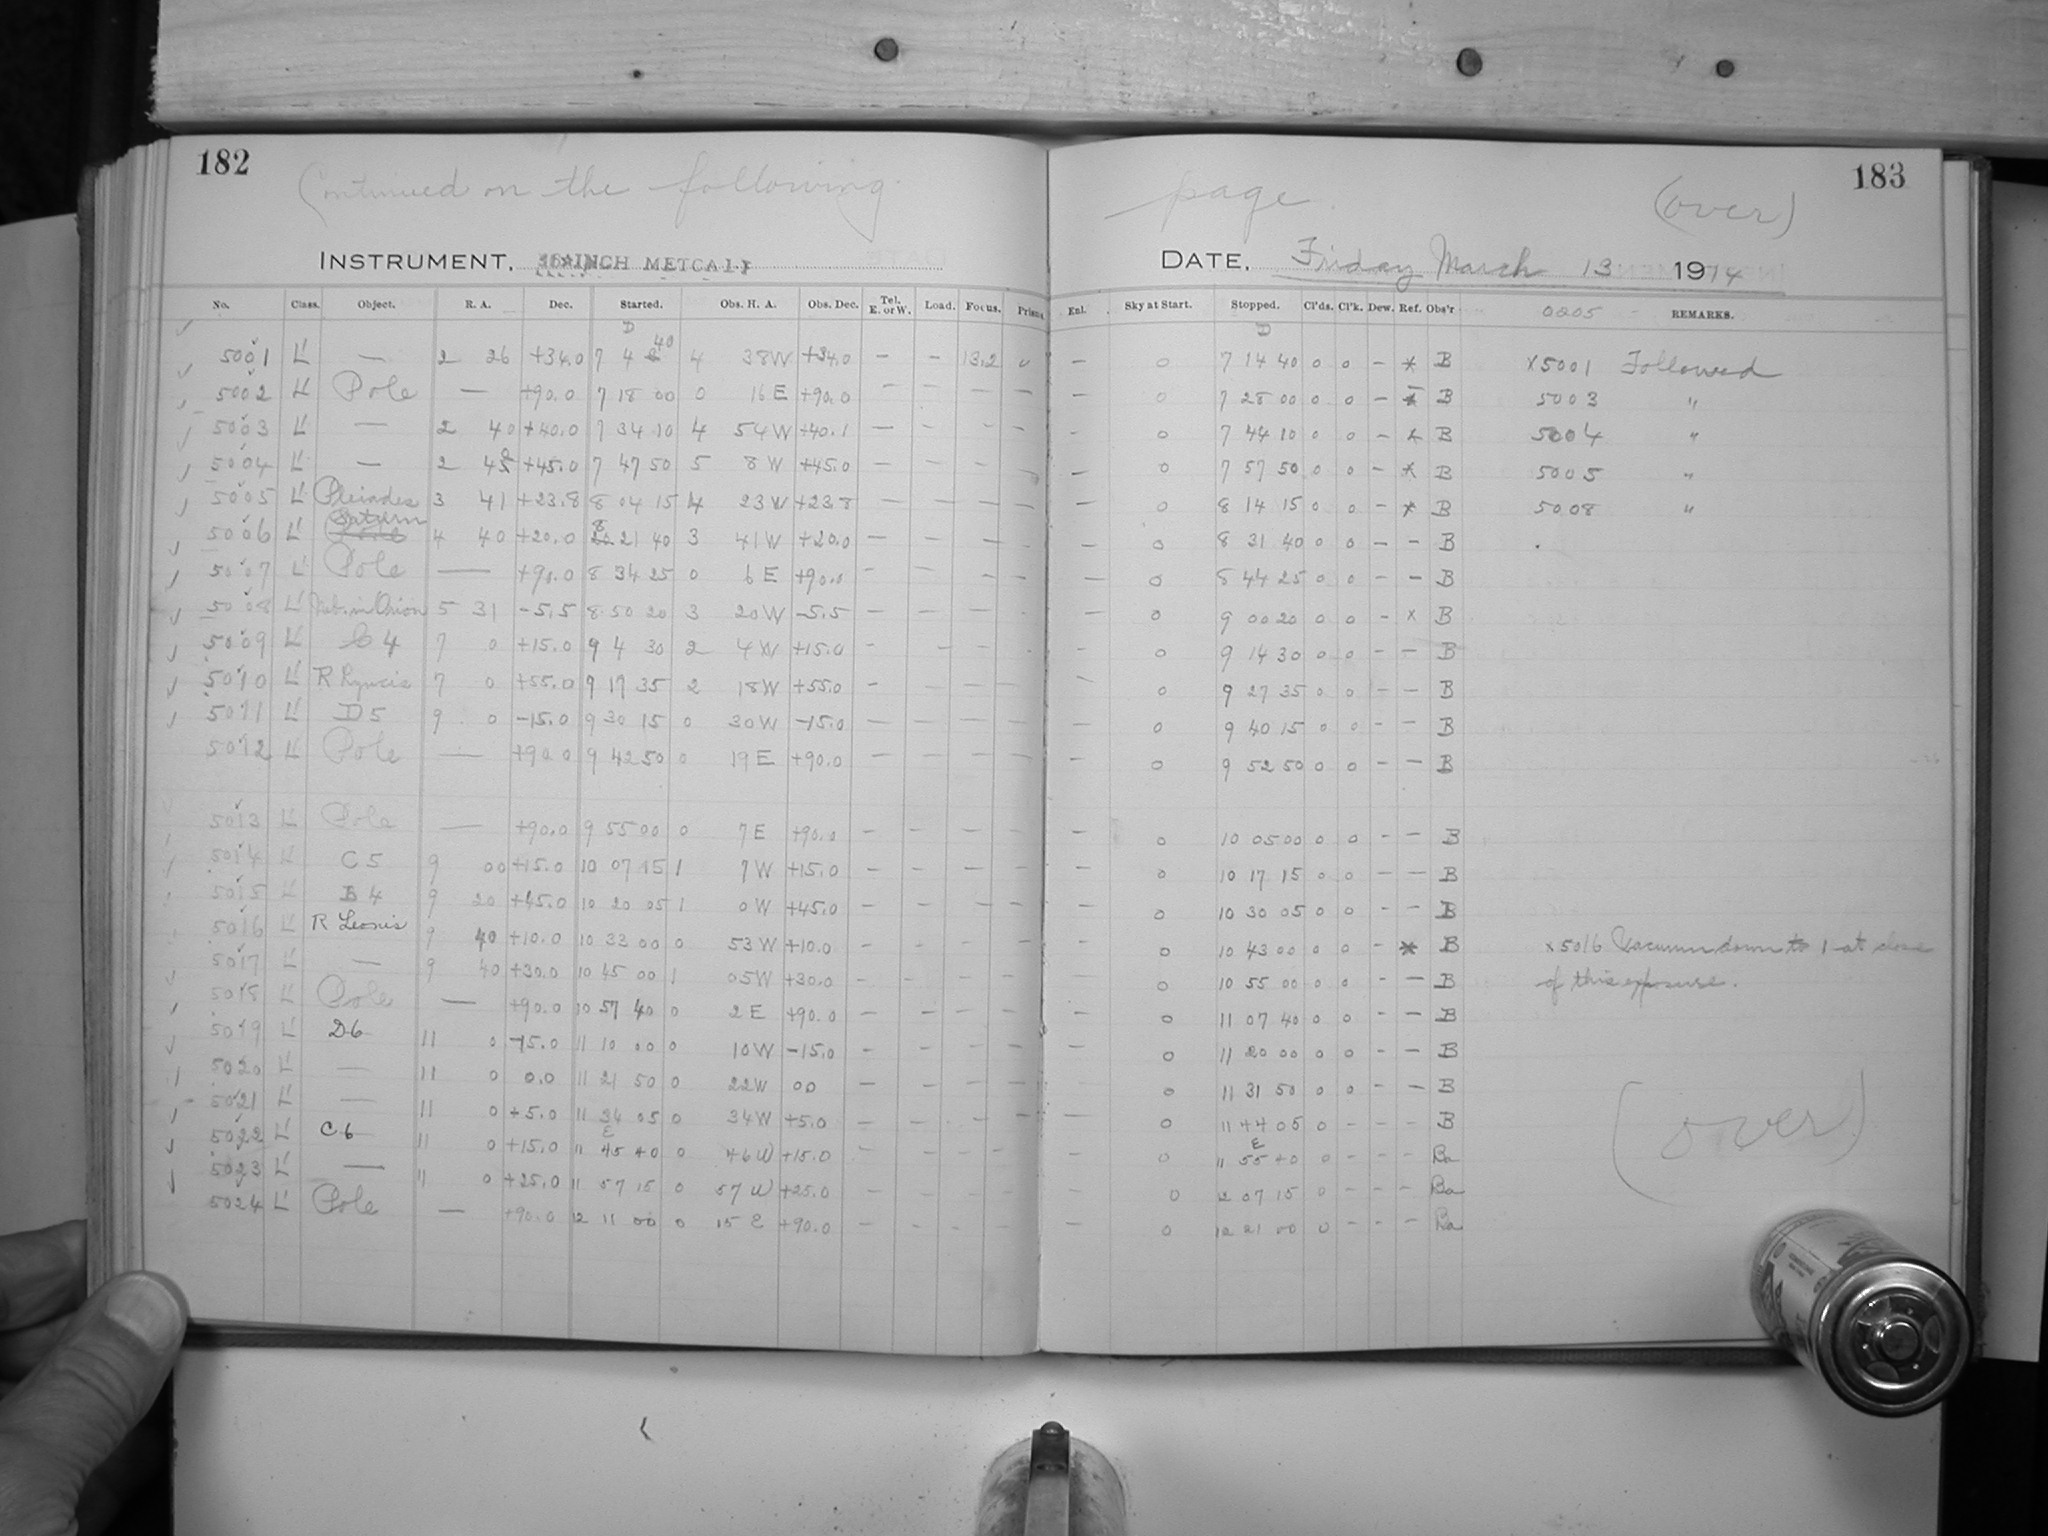 182
183
Continued on the following page. (over)
INSTRUMENT, 16-INCH METCALF
DATE, Friday March 13 1914
No. Class. Object. R. A. Dec. Started. Obs. H. A. Obs. Dec. Tel. E. or W. Load. Focus. Prisms. Enl. Sky at Start. Stopped. Cl'ds. Cl'k. Dew. Ref. Obs'r REMARKS.
D D
5001 L' — 2 26 +34.0 7 4 40 4 38W +34.0 — — 13.2 0 — 0 7 14 40 0 0 — * B x5001 Followed
5002 L' Pole — +90.0 7 18 00 0 16 E +90.0 — — — — — 0 7 28 00 0 0 — * B 5003 "
5003 L' — 2 40 +40.0 7 34 10 4 54W +40.1 — — — — — 0 7 44 10 0 0 — * B 5004 "
5004 L' — 2 45 +45.0 7 47 50 5 8 W +45.0 — — — — — 0 7 57 50 0 0 — * B 5005 "
5005 L' Pleiades 3 41 +23.8 8 04 15 4 23W +23.8 — — — — — 0 8 14 15 0 0 — * B 5008 "
5006 L' Saturn 4 40 +20.0 8 21 40 3 41W +20.0 — — — — — 0 8 31 40 0 0 — — B
5007 L' Pole — +90.0 8 34 25 0 6 E +90.0 — — — — — 0 8 44 25 0 0 — — B
5008 L' Neb. in Orion 5 31 -5.5 8 50 20 3 20W -5.5 — — — — — 0 9 00 20 0 0 — x B
5009 L' C 4 7 0 +15.0 9 4 30 2 4 W +15.0 — — — — — 0 9 14 30 0 0 — — B
5010 L' R Lyncis 7 0 +55.0 9 17 35 2 18W +55.0 — — — — — 0 9 27 35 0 0 — — B
5011 L' D 5 9 0 -15.0 9 30 15 0 30W -15.0 — — — — — 0 9 40 15 0 0 — — B
5012 L' Pole — +90.0 9 42 50 0 19 E +90.0 — — — — — 0 9 52 50 0 0 — — B
5013 L' Pole — +90.0 9 55 00 0 7 E +90.0 — — — — — 0 10 05 00 0 0 — — B
5014 L' C 5 9 00 +15.0 10 07 15 1 7 W +15.0 — — — — — 0 10 17 15 0 0 — — B
5015 L' B 4 9 20 +45.0 10 20 05 1 0 W +45.0 — — — — — 0 10 30 05 0 0 — — B
5016 L' R Leonis 9 40 +10.0 10 33 00 0 53 W +10.0 — — — — — 0 10 43 00 0 0 — * B x5016 Vacuum down to 1 at close
5017 L' — 9 40 +30.0 10 45 00 1 05W +30.0 — — — — — 0 10 55 00 0 0 — — B of this exposure.
5018 L' Pole — +90.0 10 57 40 0 2 E +90.0 — — — — — 0 11 07 40 0 0 — — B
5019 L' D6 11 0 -15.0 11 10 00 0 10W -15.0 — — — — — 0 11 20 00 0 0 — — B
5020 L' — 11 0 0.0 11 21 50 0 22W 00 — — — — — 0 11 31 50 0 0 — — B
5021 L' — 11 0 +5.0 11 34 05 0 34W +5.0 — — — — — 0 11 44 05 0 — — — B
E E
5022 L' C6 11 0 +15.0 11 45 40 0 46 W +15.0 — — — — — 0 11 55 40 0 — — — Ba
5023 L' — 11 0 +25.0 11 57 15 0 57 W +25.0 — — — — — 0 12 07 15 0 — — — Ba
5024 L' Pole — +90.0 12 11 00 0 15 E +90.0 — — — — — 0 12 21 00 0 — — — Ba
(over)